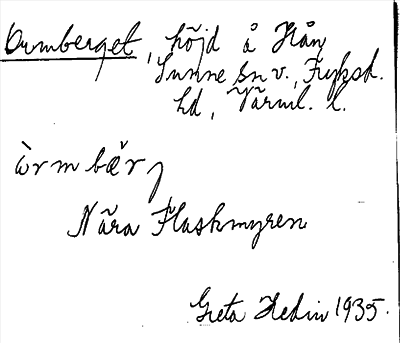 Ormberget, höjd å Hån
Sunne sn v., Fryksd.
hd, Värml. l.
òrmbær̆j
Nära Flaskmyren
Greta Hedin 1935.